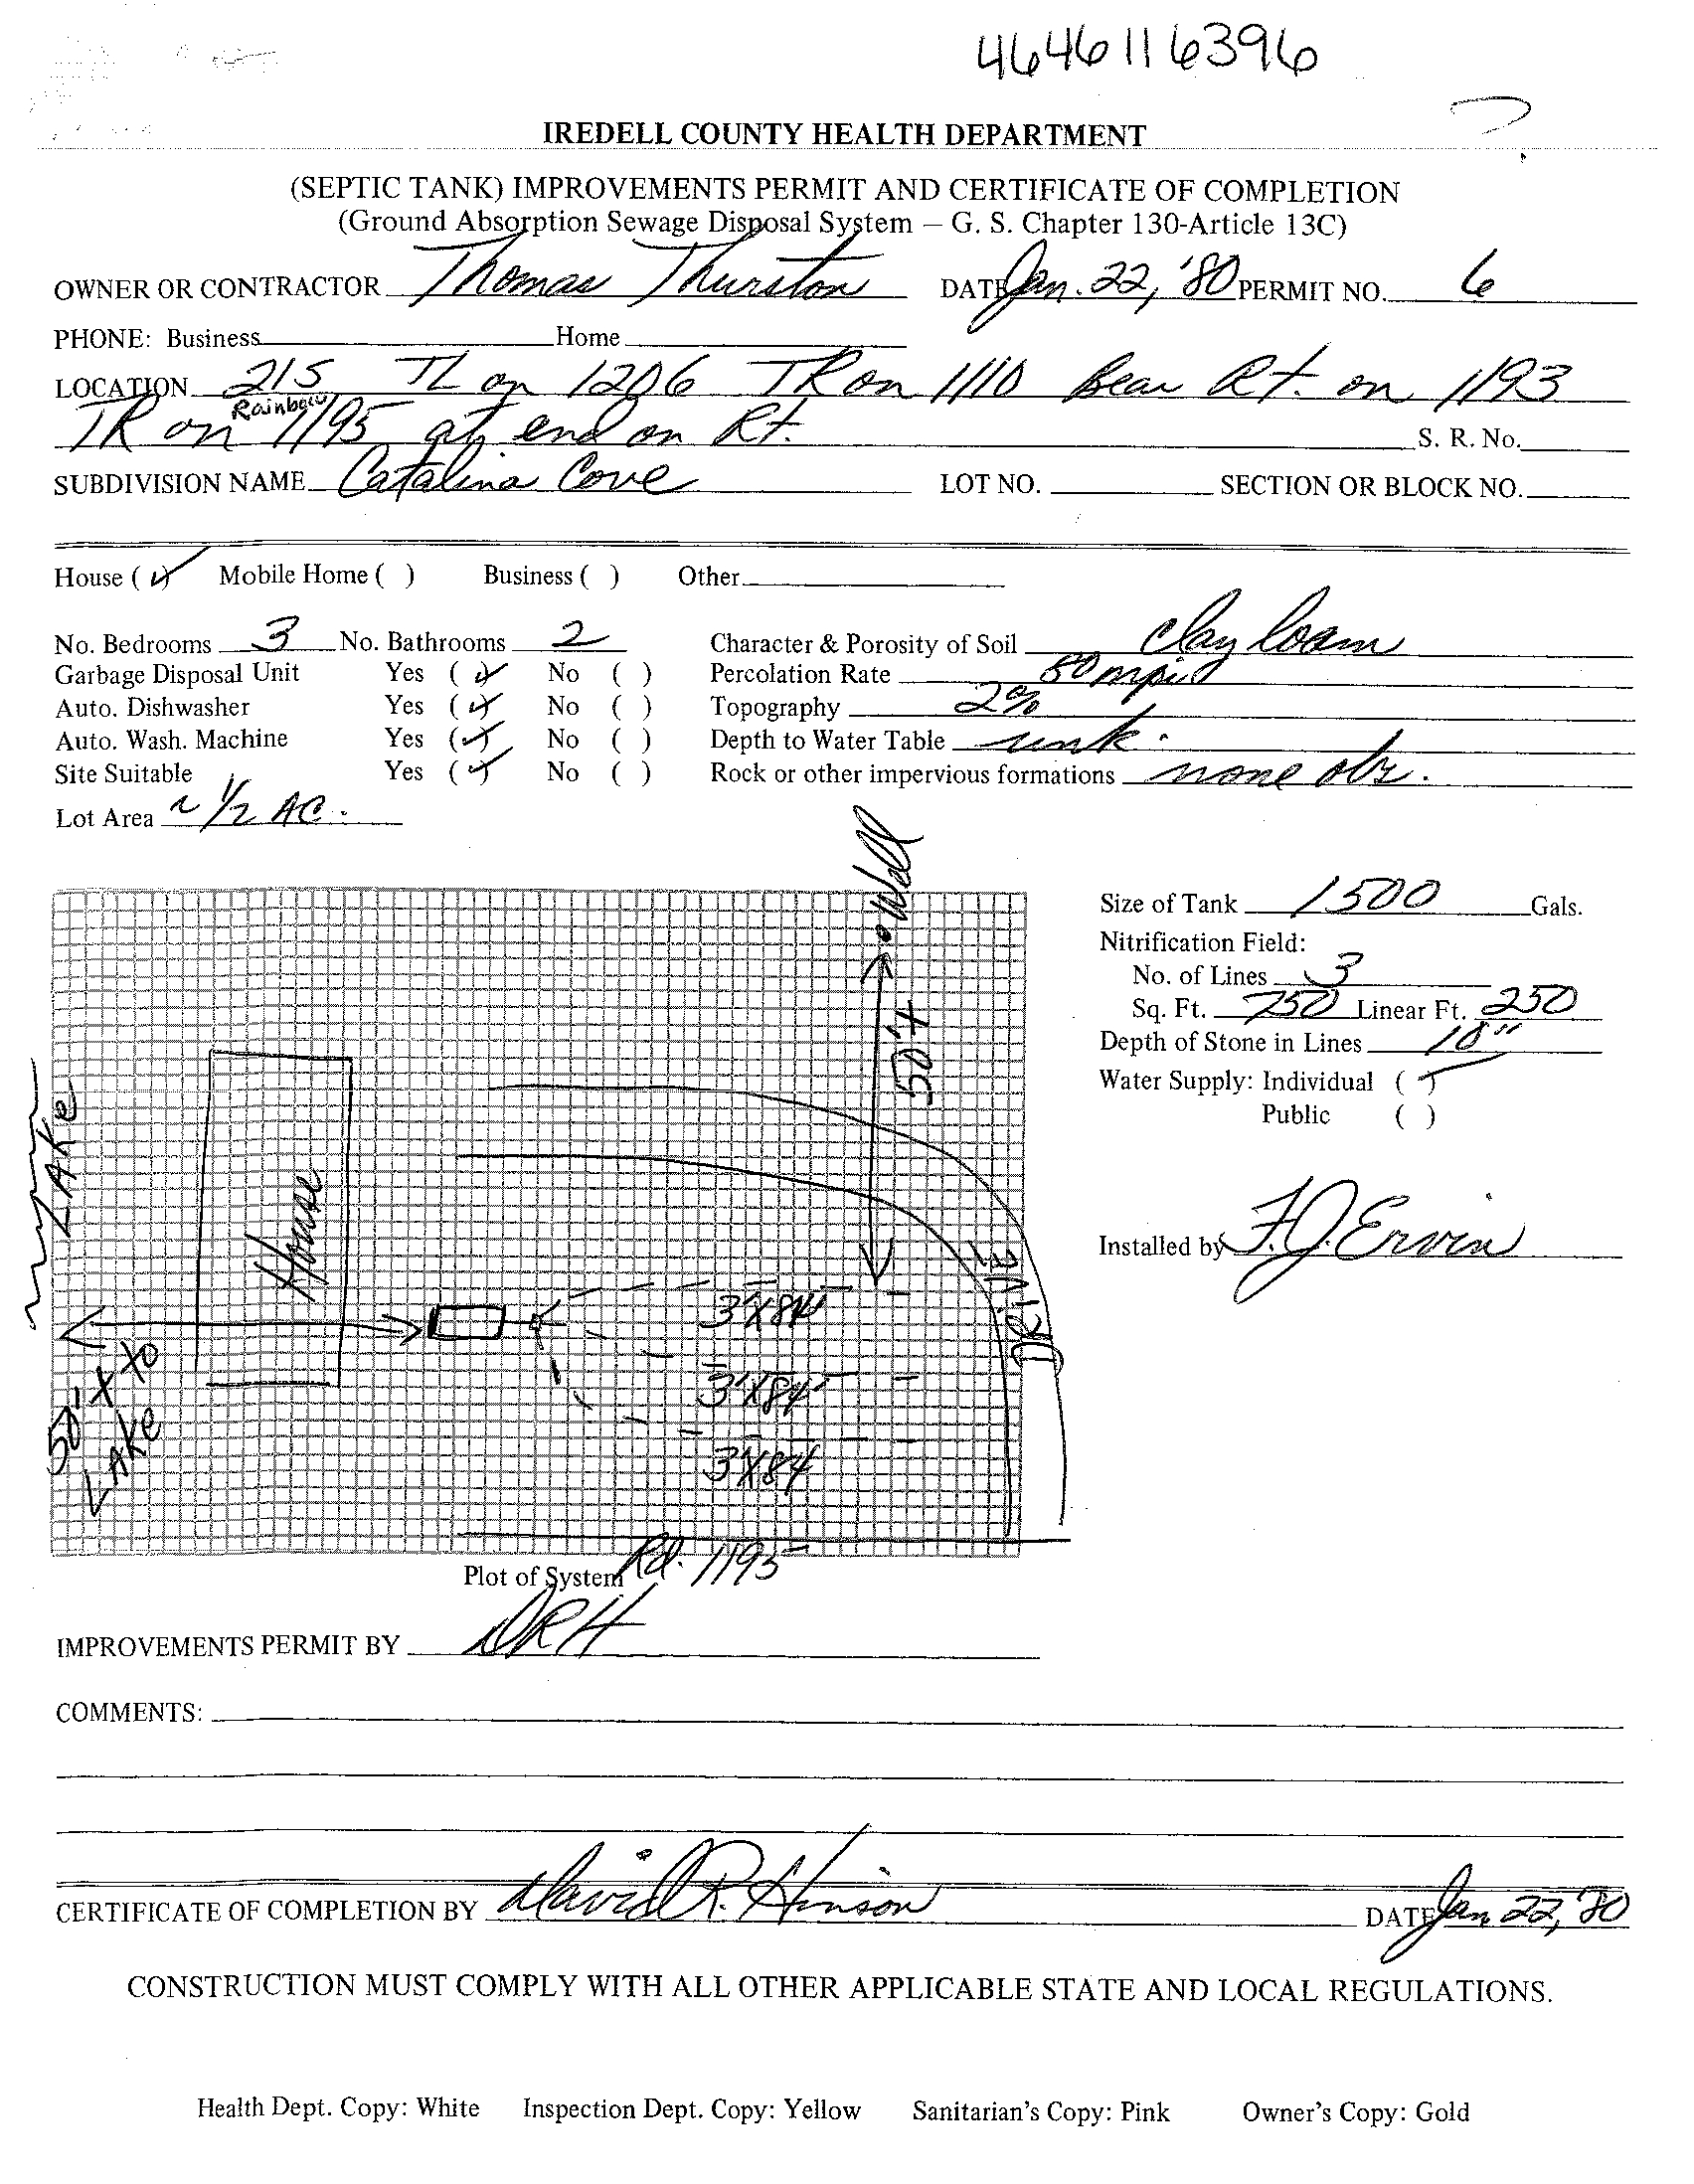 4646116396
?
IREDELL COUNTY HEALTH DEPARTMENT
(SEPTIC TANK) IMPROVEMENTS PERMIT AND CERTIFICATE OF COMPLETION
(Ground Absorption Sewage Disposal System – G. S. Chapter 130-Article 13C)
OWNER OR CONTRACTOR Thomas Thurston DATE Jan. 22, '80 PERMIT NO. 6
PHONE: Business Home
LOCATION 21S TL on 1206 TR on 1110 Bear Rt. on 1193
Rainbow
TR on 1195 at end on Rt. S. R. No.
SUBDIVISION NAME Catalina Cove LOT NO. SECTION OR BLOCK NO.
House (✓) Mobile Home ( ) Business ( ) Other
No. Bedrooms 3 No. Bathrooms 2 Character & Porosity of Soil clay loam
Garbage Disposal Unit Yes (✓) No ( ) Percolation Rate 50 mpi
Auto. Dishwasher Yes (✓) No ( ) Topography 2%
Auto. Wash. Machine Yes (✓) No ( ) Depth to Water Table unk.
Site Suitable Yes (✓) No ( ) Rock or other impervious formations none obs.
Lot Area ~ 1/2 AC.
Well
Size of Tank 1500 Gals.
Nitrification Field:
No. of Lines 3
Sq. Ft. 750 Linear Ft. 250
Depth of Stone in Lines 18"
Water Supply: Individual (✓)
Public ( )
50'+
LAKE
House
Installed by F.J. Ervin
DRIVE
3'X84'
50'+ to
LAKE
3'X84'
3'X84'
Plot of System Rd. 1195
IMPROVEMENTS PERMIT BY DRH
COMMENTS:
CERTIFICATE OF COMPLETION BY David R. Hinson DATE Jan 22, '80
CONSTRUCTION MUST COMPLY WITH ALL OTHER APPLICABLE STATE AND LOCAL REGULATIONS.
Health Dept. Copy: White Inspection Dept. Copy: Yellow Sanitarian's Copy: Pink Owner's Copy: Gold